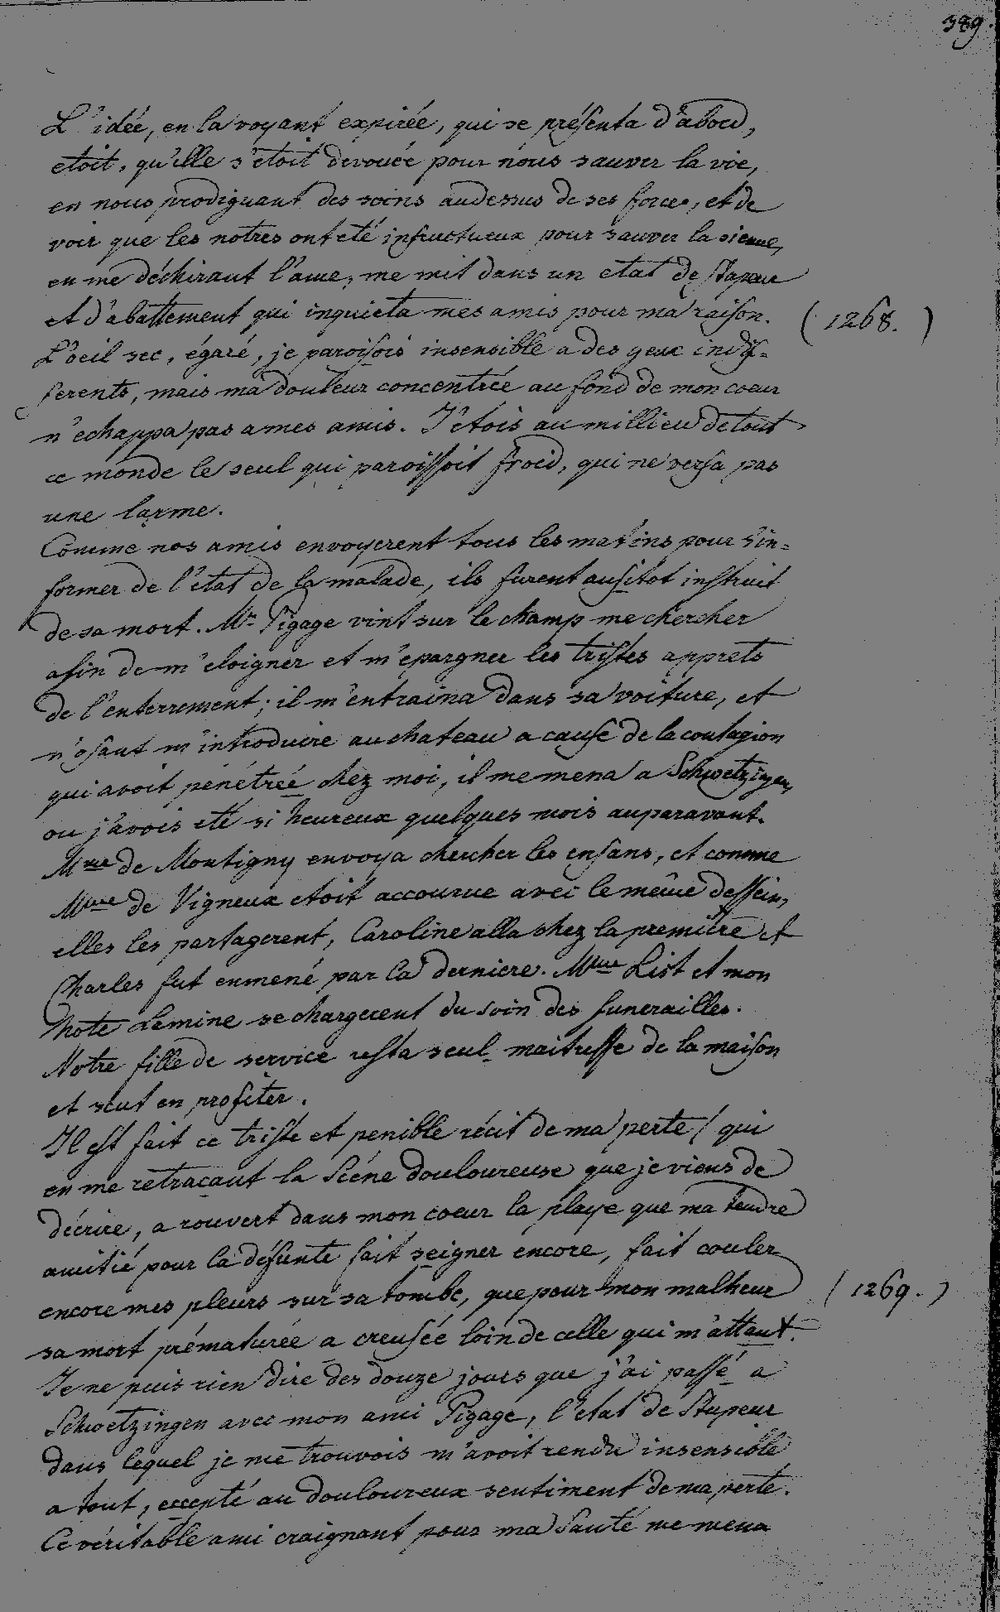 389.
L'idée, en la voyant expirée, qui se présenta d'abord,
etoit, qu'elle s'etoit devouée pour nous sauver la vie,
en nous prodiguant des soins audessus de ses forces, et de
voir que les notres ont eté infructueux pour sauver la sienne,
en me déchirant l'ame, me mit dans un etat de stupeur
et d'abattement qui inquieta mes amis pour ma raison.
(1268.)
L'oeil sec, égaré, je paroisois insensible a des yeux indif=
ferents, mais ma douleur concentrée au fond de mon coeur
n'echappa pas a mes amis. J'etois au millieu de tout
ce monde le seul qui paroissoit froid, qui ne versa pas
une larme.
Comme nos amis envoyerent tous les matins pour s'in=
former de l'etat de la malade, ils furent ausitot instruit
de sa mort. Mr. Pigage vint sur le champ me chercher
afin de m'eloigner et m'epargner les tristes apprets
de l'enterrement; il m'entraina dans sa voiture, et
n'osant m'introduire au chateau a cause de la contagion
qui avoit pénétrée chez moi, il me mena a Schwetzingen,
ou j'avois eté si heureux quelques mois auparavant.
Mme de Montigny envoya chercher les enfans, et comme
Mme de Vigneux etoit accourue avec le même dessein,
elles les partagerent, Caroline alla chez la premiere et
Charles fut enmené par la derniere. Mme List et mon
hote Lemine se chargerent du soin des funerailles.
Notre fille de service resta seul maitresse de la maison
et scut en profiter.
Il est fait ce triste et penible récit de ma perte! qui
en me retraçant la Scéne douloureuse que je viens de
décrire, a rouvert dans mon coeur la playe que ma tendre
amitié pour la défunte fait seigner encore, fait couler
encore mes pleurs sur sa tombe, que pour mon malheur
(1269.)
sa mort prématurée a creusée loin de celle qui m'attent.
Je ne puis rien dire des douze jours que j'ai passé a
Schwetzingen avec mon ami Pigage, l'etat de Stupeur
dans lequel je me trouvois m'avoit rendu insensible
a tout, eccepté au douloureux sentiment de ma perte.
Ce véritable ami craignant pour ma Santé me mena